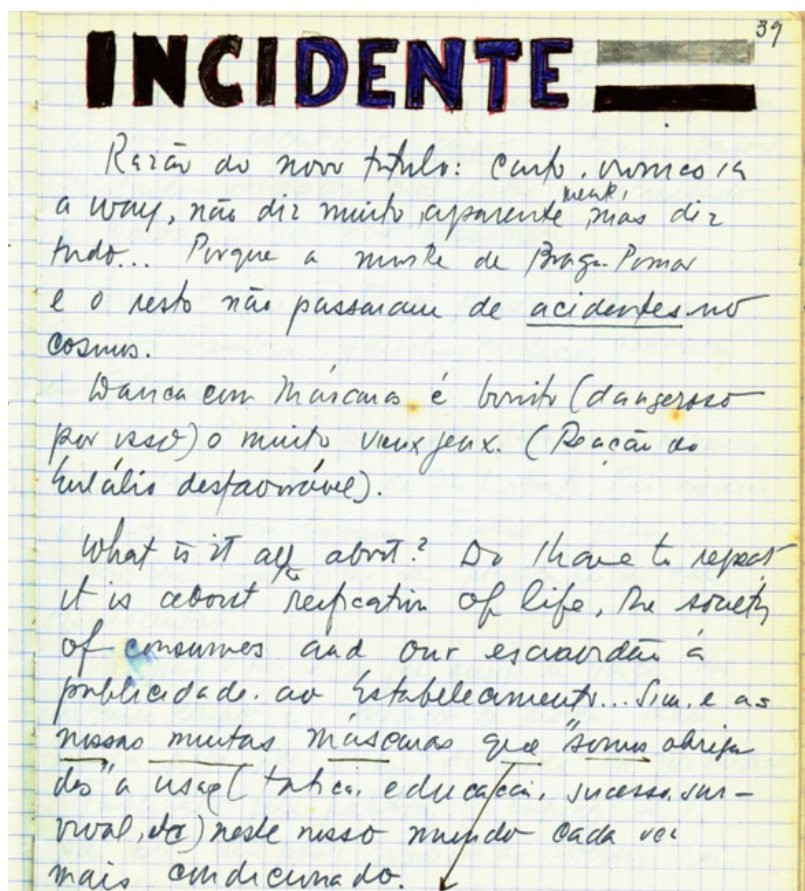 39
INCIDENTE
Razão do novo título: curto, irônico in
a way, não diz muito aparentemente, mas diz
tudo... Porque a morte de Braga-Pomar
e o resto não passaram de acidentes no
cosmos.
Dança com Máscaras é bonito (dangeroso
por isso) e muito vieux jeux. (Reação do
Eulálio desfavorável).
What is it all about? Do I have to repeat
it is about the reification of life, the society
of consumes and our escravidão à
publicidade. ao Estabelecimento... Sim, e as
nossas muitas máscaras que "somos obriga
dos" a usar (tática, educação, sucesso, sur-
vival, etc) neste nosso mundo cada vez
mais condicionado.